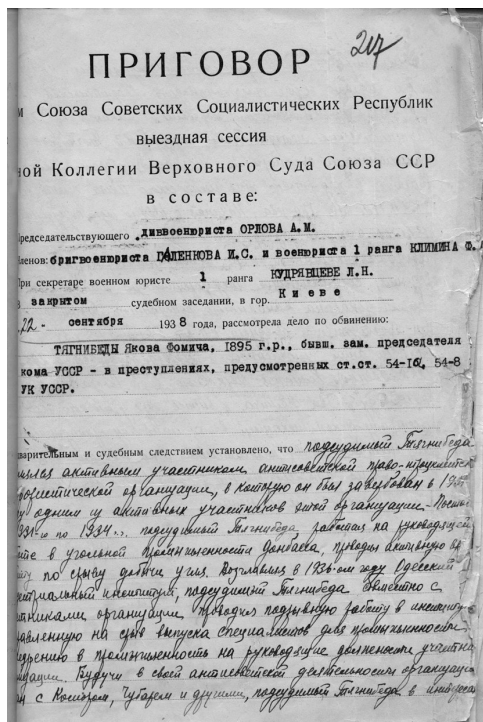 217
ПРИГОВОР
м Союза Советских Социалистических Республик
выездная сессия
ной Коллегии Верховного Суда Союза ССР
в составе:
Председательствующего диввоенюриста ОРЛОВА А.М.
членов: бригвоенюриста ГАЛЕНКОВА И.С. и военюриста 1 ранга КЛИМИНА Ф.А
При секретаре военном юристе 1 ранга КУДРЯВЦЕВЕ Л.Н.
в закрытом судебном заседании, в гор. Киеве
22 - сентября 1938 года, рассмотрела дело по обвинению:
ТЯГНИБЕДЫ Якова Фомича, 1895 г.р., бывш. зам. председателя
кома УССР - в преступлениях, предусмотренных ст.ст. 54-8
УК УССР.
варительным и судебным следствием установлено, что подсудимый Тягнибеда
являлся активным участником антисоветской право-троцкистск
террористической организации, в которую он был завербован в
одним из активных участников этой организации
по 1934 подсудимый Тягнибеда работая на руководящей
в угольной промышленности Донбасса, проводил активную
по срыву добычи угля. Возглавляя в 1936-ом году Одесский
индустриальный институт, подсудимый Тягнибеда совместно с
участниками организации проводил подрывную работу в институте
направленную на срыв выпуска специалистов для промышленности
внедрению в промышленность на руководящие должности участник
организации. Будучи в своей антисоветской деятельности организацион
с Косиором, Чубарем и другими, подсудимый Тягнибеда в интересах